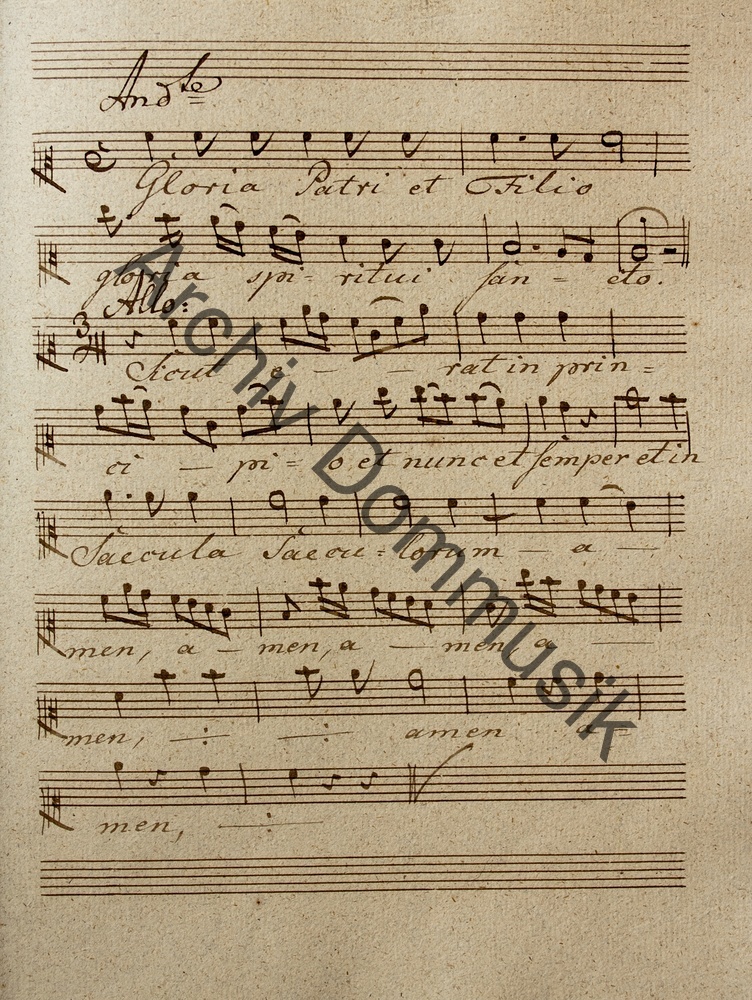 And.te
Gloria Patri et Filio
gloria spi- ritui san = cto.
Allo:
3/4 Sicut e — — rat in prin=
ci — pi = o et nunc et semper et in
Saecula saecu = lorum — a —
men, a — men, a — men, a —
men, — : — — : — amen a =
men, — : —
Archiv Dommusik